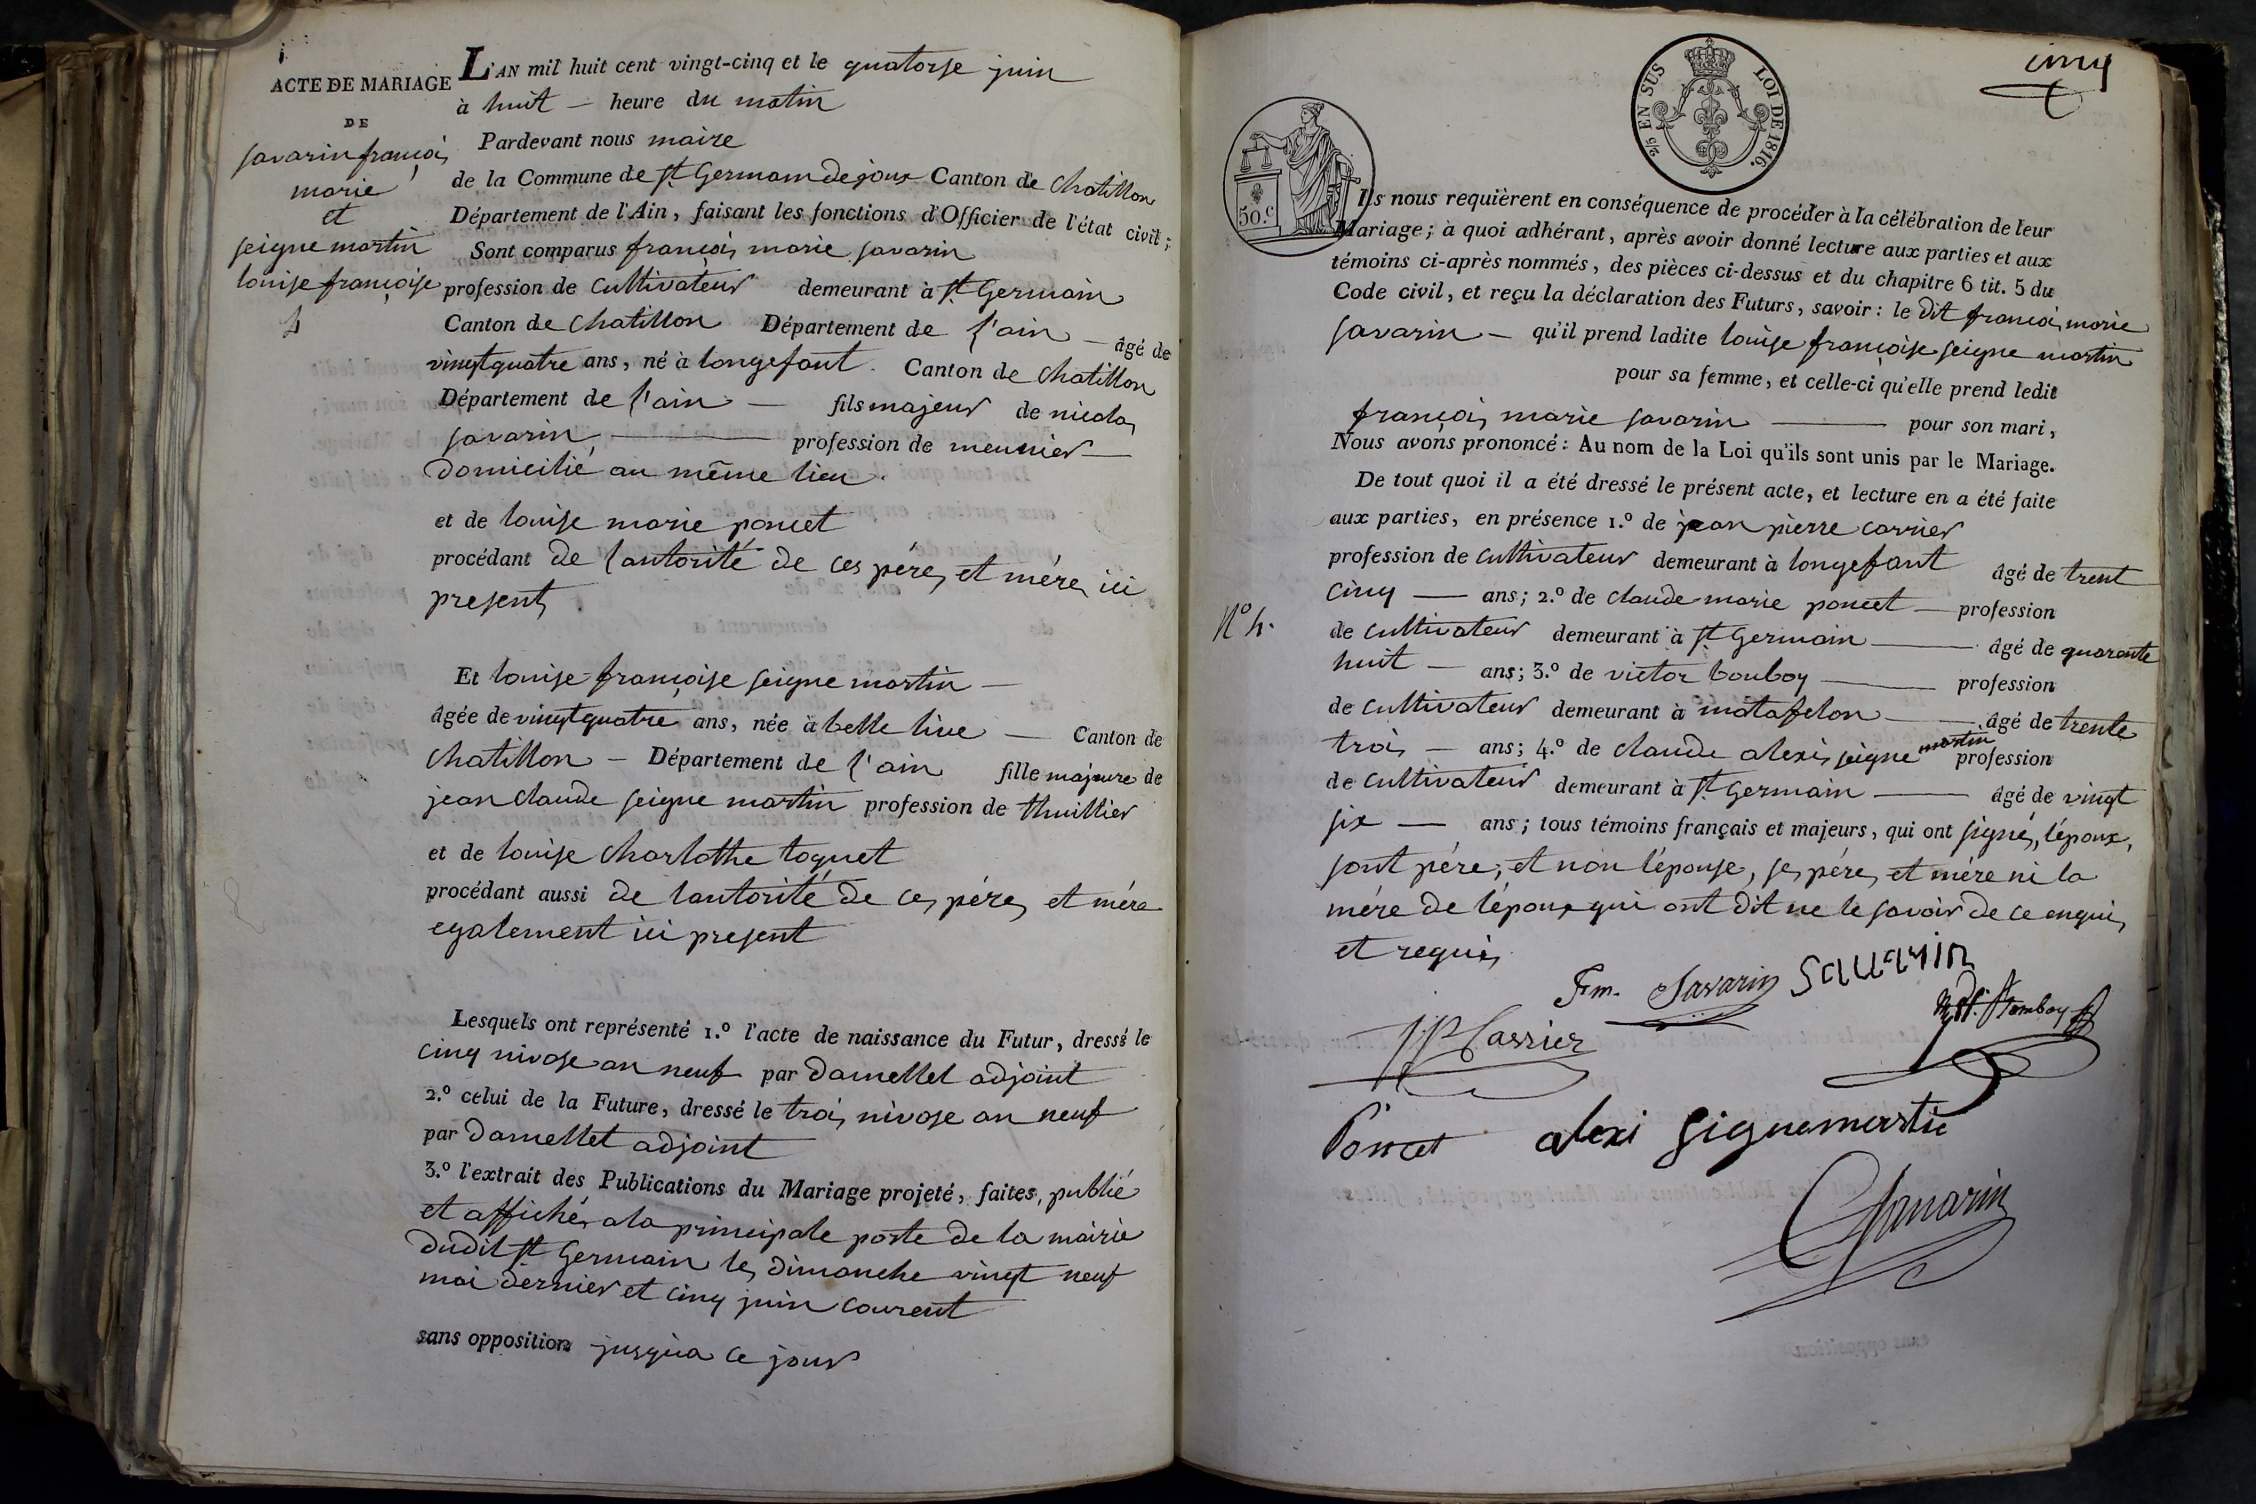 ACTE DE MARIAGE
DE
savarin françois
marie
et
seigne martin
louise françoise
L'AN mil huit cent vingt-cinq et le quatorse juin
à huit — heure du matin
Pardevant nous maire
de la Commune de St Germain dejoux Canton de Chatillon
Département de l'Ain, faisant les fonctions d'Officier de l'état civil;
Sont comparus françois marie savarin
profession de Cultivateur demeurant à St Germain
Canton de Chatillon Département de l'ain — âgé de
vingtquatre ans, né à longefant. Canton de Chatillon
Département de l'ain — fils majeur de nicolas
savarin — profession de meunier —
domicilié au même lieu.
et de louise marie poncet
procédant de lautorité de ces péres et mére ici
presents
Et louise françoise seigne martin —
âgée de vingtquatre ans, née à belle live — Canton de
Chatillon — Département de l'ain fille majeure de
jean claude seigne martin profession de thuillier
et de louise Charlothe toquet
procédant aussi de lautorité de ces péres et mére
egalement ici present
Lesquels ont représenté 1.º l'acte de naissance du Futur, dressé le
cinq nivose an neuf par damellet adjoint
2.º celui de la Future, dressé le trois nivose an neuf
par damellet adjoint
3.º l'extrait des Publications du Mariage projeté, faites, publié
et affichés a la principale porte de la mairie
dudit St Germain les dimanche vingt neuf
mai dernier et cinq juin courent
sans opposition jusqua ce jour
cinq
2/5 EN SUS LOI DE 1816.
50.c
Ils nous requièrent en conséquence de procéder à la célébration de leur
Mariage; à quoi adhérant, après avoir donné lecture aux parties et aux
témoins ci-après nommés, des pièces ci-dessus et du chapitre 6 tit. 5 du
Code civil, et reçu la déclaration des Futurs, savoir: le dit françois marie
savarin — qu'il prend ladite louise françoise seigne martin
pour sa femme, et celle-ci qu'elle prend ledit
françois marie savarin — pour son mari,
Nous avons prononcé: Au nom de la Loi qu'ils sont unis par le Mariage.
De tout quoi il a été dressé le présent acte, et lecture en a été faite
aux parties, en présence 1.º de jean pierre carrier
profession de cultivateur demeurant à longefant âgé de trent
cinq — ans; 2.º de claude marie poncet — profession
Nº 4.
de cultivateur demeurant à St Germain — âgé de quarente
huit — ans; 3.º de victor bouboy — profession
de cultivateur demeurant à matafelon — âgé de trente
trois — ans; 4.º de claude alexis seigne martin profession
de cultivateur demeurant à St Germain — âgé de vingt
six — ans; tous témoins français et majeurs, qui ont signés, lépoux,
sont pére, et non lépouse, ses péres et mére ni la
mére de lépoux qui ont dit ne le savoir de ce enquis
et requis
Fm. Savarin savarin
JP Carrier
Poncet alexi signemartin
Savarin